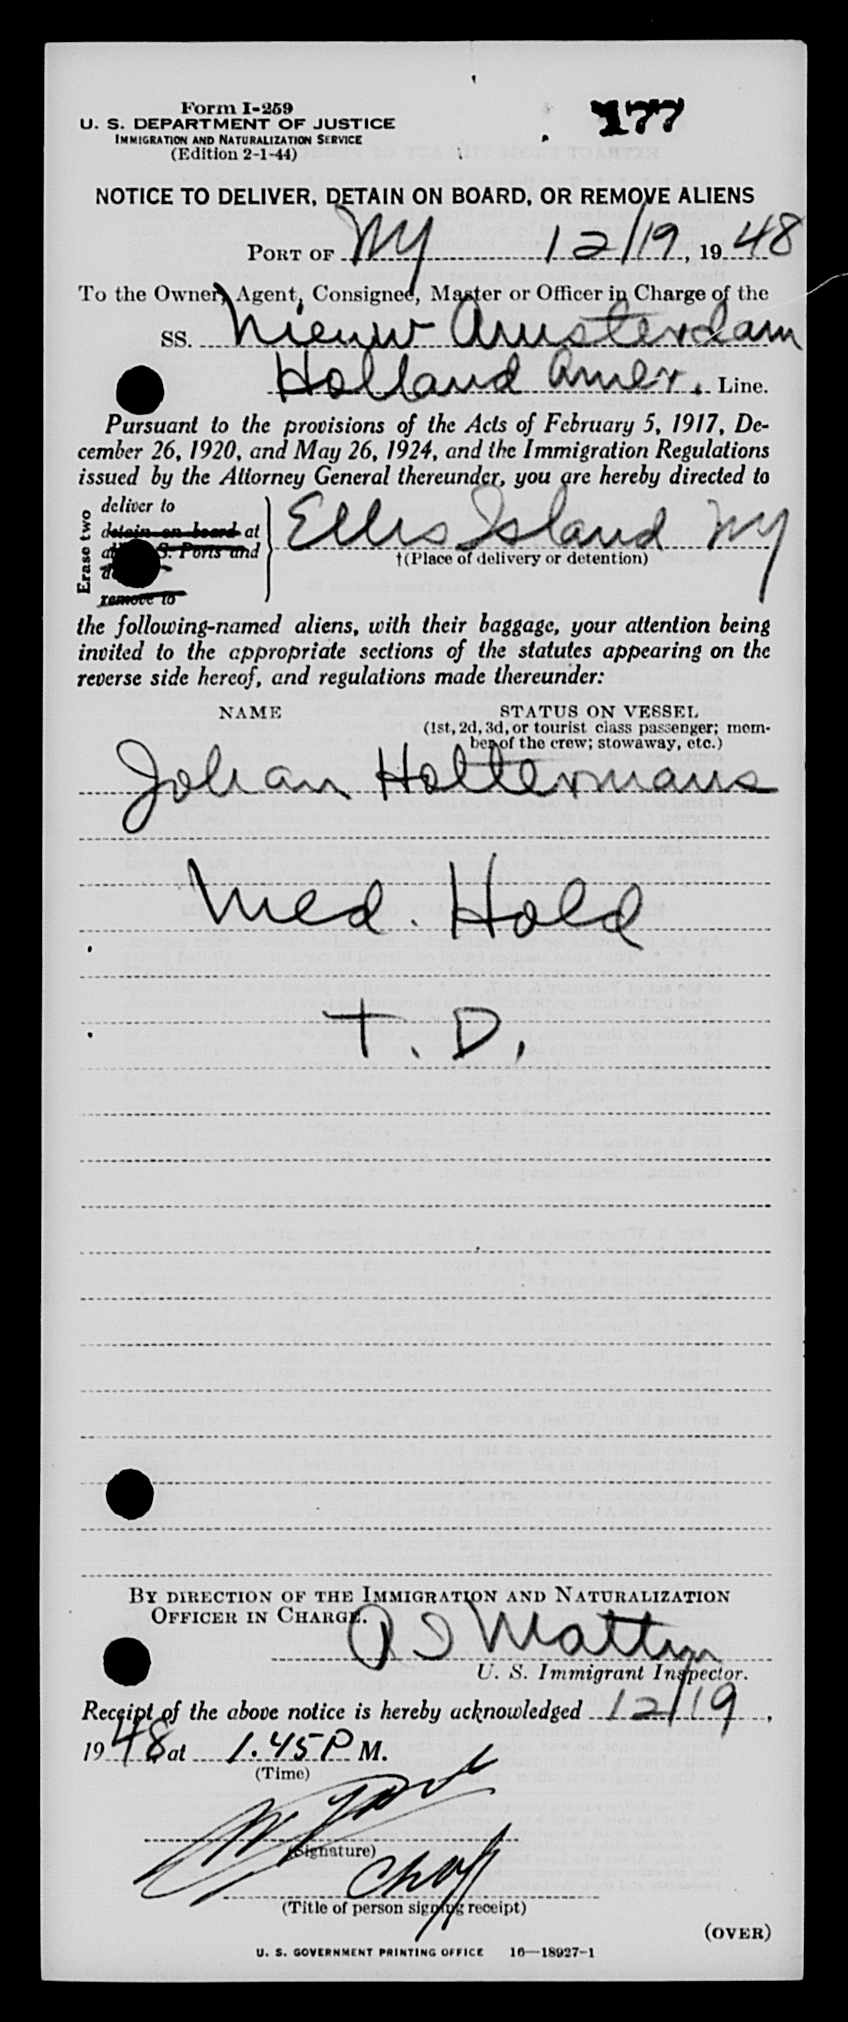 Form I-259
177
U. S. DEPARTMENT OF JUSTICE
IMMIGRATION AND NATURALIZATION SERVICE
(Edition 2-1-44)
NOTICE TO DELIVER, DETAIN ON BOARD, OR REMOVE ALIENS
PORT OF NY 12/19, 1948
To the Owner, Agent, Consignee, Master or Officer in Charge of the
SS. Nieuw Amsterdam
Holland Amer. Line.
Pursuant to the provisions of the Acts of February 5, 1917, De-
cember 26, 1920, and May 26, 1924, and the Immigration Regulations
issued by the Attorney General thereunder, you are hereby directed to
Erase two
deliver to
detain on board at
S. Ports and
remove to
Ellis Island NY
†(Place of delivery or detention)
the following-named aliens, with their baggage, your attention being
invited to the appropriate sections of the statutes appearing on the
reverse side hereof, and regulations made thereunder:
NAME STATUS ON VESSEL
(1st, 2d, 3d, or tourist class passenger; mem-
ber of the crew; stowaway, etc.)
Johan Holtermans
Med. Hold
T. D.
BY DIRECTION OF THE IMMIGRATION AND NATURALIZATION
OFFICER IN CHARGE.
U. S. Immigrant Inspector.
Receipt of the above notice is hereby acknowledged 12/19,
1948 at 1.45 P M.
(Time)
(Signature)
(Title of person signing receipt)
(OVER)
U. S. GOVERNMENT PRINTING OFFICE 16—18927-1